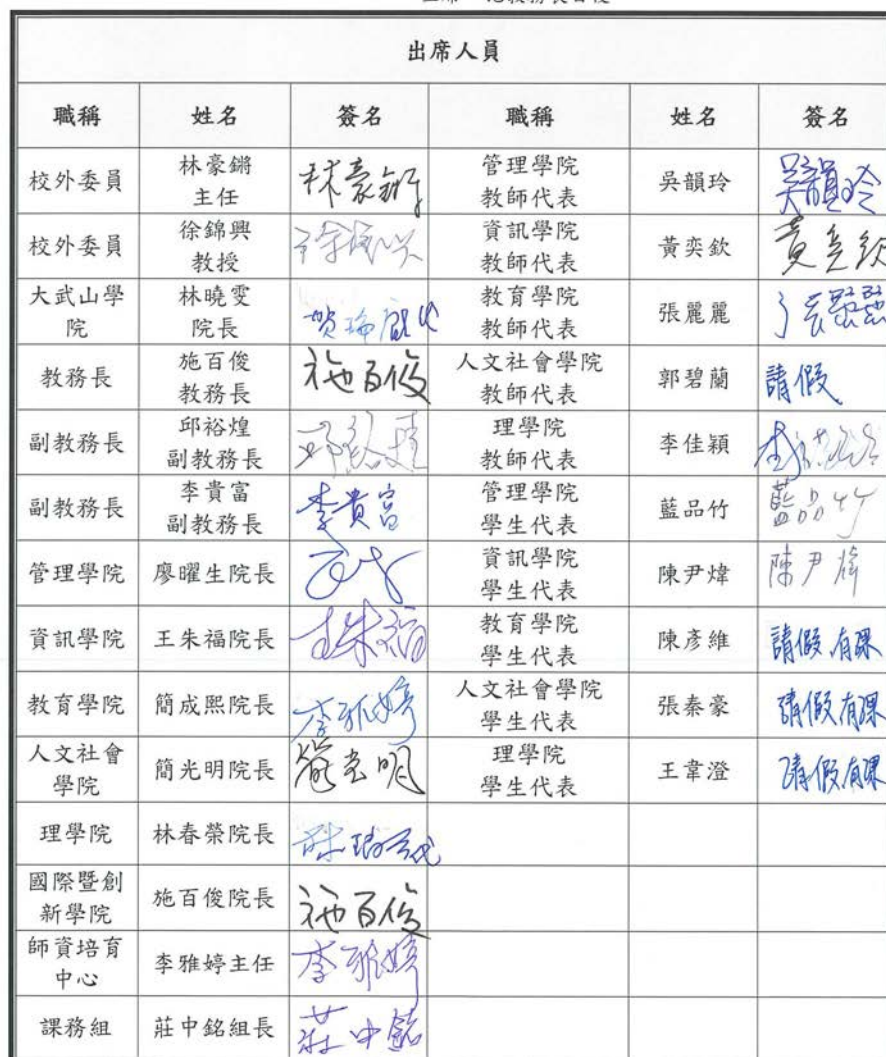 出席人員
職稱 姓名 簽名 職稱 姓名 簽名
校外委員 林豪鏘 主任 林豪鏘 管理學院 教師代表 吳韻玲 吳韻玲
校外委員 徐錦興 教授 徐錦興 資訊學院 教師代表 黃奕欽 黃奕欽
大武山學院 林曉雯 院長 資訊學院 教育學院 教師代表 張麗麗 張麗麗
教務長 施百俊 教務長 施百俊 人文社會學院 教師代表 郭碧蘭 請假
副教務長 邱裕煌 副教務長 邱裕煌 理學院 教師代表 李佳穎
副教務長 李貴富 副教務長 李貴富 管理學院 學生代表 藍品竹 藍品竹
管理學院 廖曜生院長 資訊學院 學生代表 陳尹煒 陳尹煒
資訊學院 王朱福院長 王朱福 教育學院 學生代表 陳彥維 請假,有課
教育學院 簡成熙院長 李雅婷 人文社會學院 學生代表 張秦豪 請假有課
人文社會學院 簡光明院長 簡光明 理學院 學生代表 王韋澄 請假有課
理學院 林春榮院長
國際暨創新學院 施百俊院長 施百俊
師資培育中心 李雅婷主任 李雅婷
課務組 莊中銘組長 莊中銘